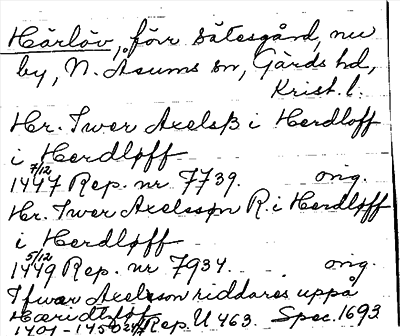 Härlöv, förr sätesgård, nu
by, N. Åsums sn, Gärds hd,
Krist. l.
Hr. Iwer Axelsß i Herdloff
i Herdløff
7/12
1447 Rep. nr 7739. orig.
Hr. Iwer Axelssøn R. i Herdløff
i Herdløff
5/12
1449 Rep. nr 7934. orig.
Ifwar Axelsson riddares uppå
Hæridtløff
Rep. U 463. Spec. 1693